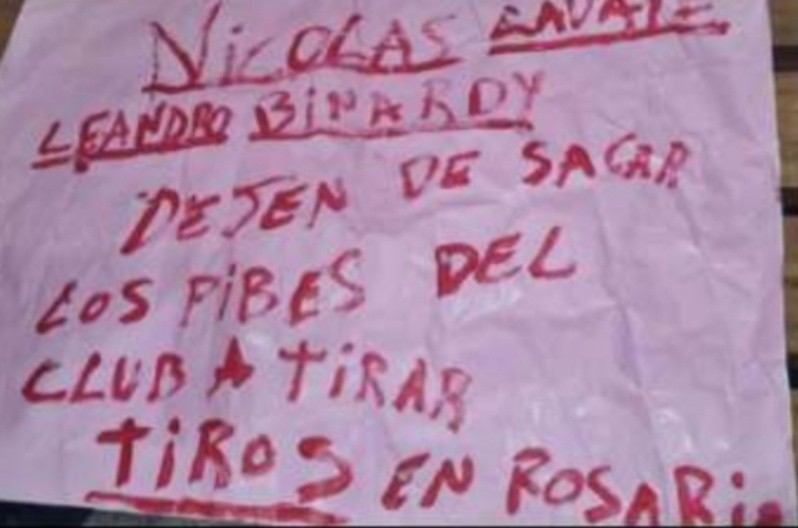 NiCOLAS
LEANDRO BINARDY
DEJEN DE SACAR
LOS PiBES DEL
CLUB A TiRAR
TiROS EN ROSARio